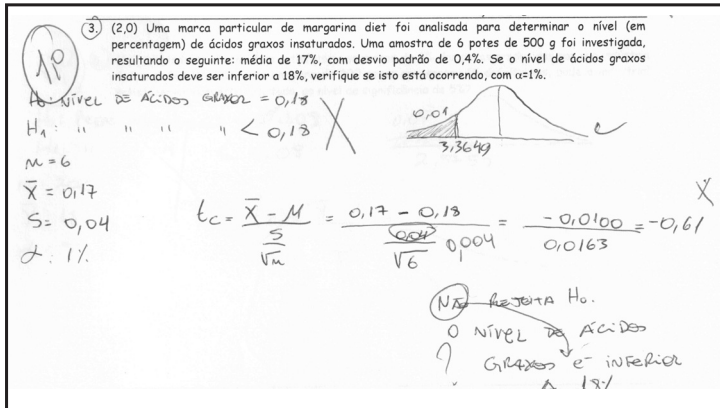 3. (2,0) Uma marca particular de margarina diet foi analisada para determinar o nível (em
percentagem) de ácidos graxos insaturados. Uma amostra de 6 potes de 500 g foi investigada,
resultando o seguinte: média de 17%, com desvio padrão de 0,4%. Se o nível de ácidos graxos
insaturados deve ser inferior a 18%, verifique se isto está ocorrendo, com α=1%.
H0: NÍVEL DE ÁCIDOS GRAXOS = 0,18
H1: " " " " < 0,18
0,01
3,3649
n = 6
X̄ = 0,17
S = 0,04
α: 1%
tc = X̄ - M / S/√n = 0,17 - 0,18 / 0,04/√6 = -0,0100 / 0,0163 = -0,61
0,004
NÃO REJEITA H0.
O NÍVEL DE ÁCIDOS
? GRAXOS É INFERIOR
A 18%